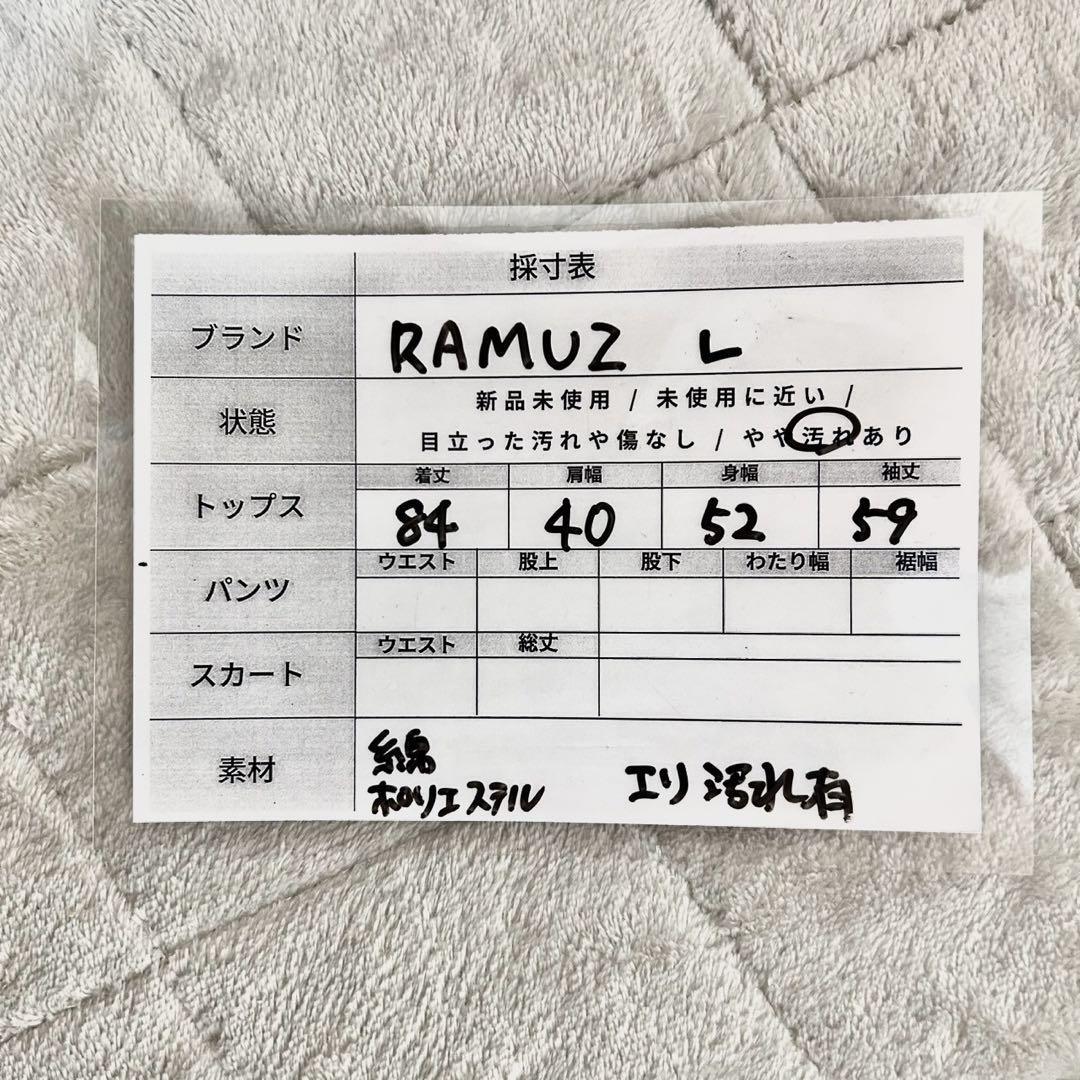 採寸表
ブランド RAMUZ L
状態 新品未使用 / 未使用に近い /
目立った汚れや傷なし / やや汚れあり
トップス 着丈 肩幅 身幅 袖丈
84 40 52 59
パンツ ウエスト 股上 股下 わたり幅 裾幅
スカート ウエスト 総丈
素材 綿
ポリエステル エリ汚れ有